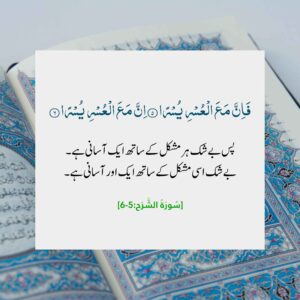 فَاِنَّ مَعَ الْعُسْرِ يُسْرًا ۝۵ اِنَّ مَعَ الْعُسْرِ يُسْرًا ۝۶
پس بے شک ہر مشکل کے ساتھ ایک آسانی ہے۔
بے شک اسی مشکل کے ساتھ ایک اور آسانی ہے۔
[سُورَةُ الشَّرْح:5-6]